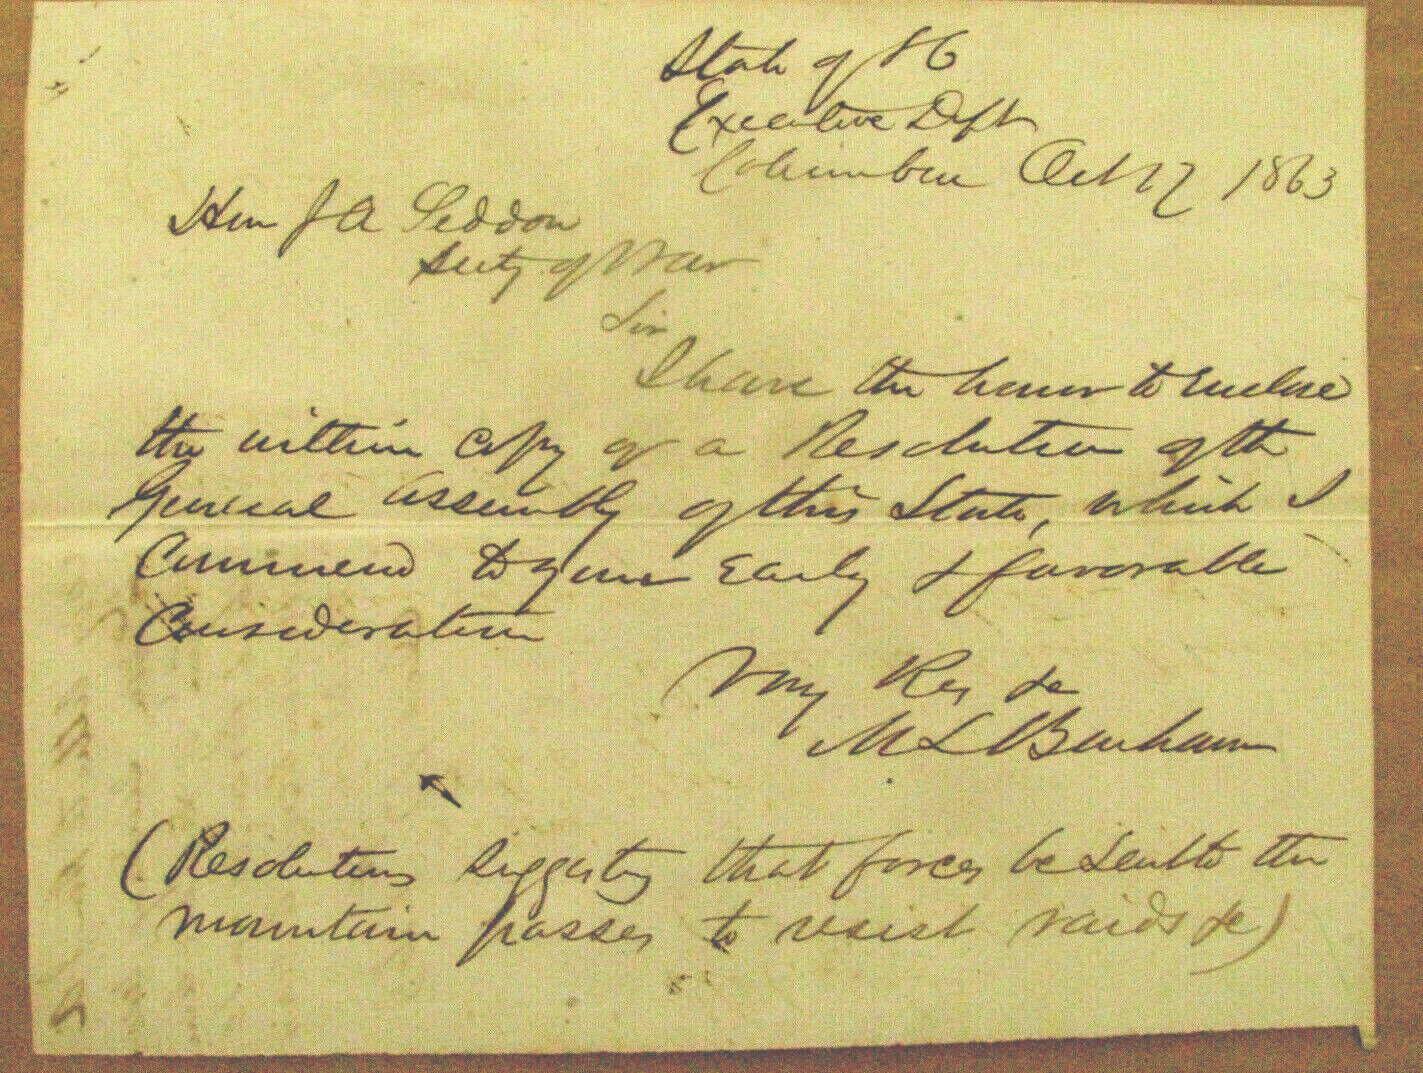 State of S C
Executive Dept
Columbia Oct 17 1863
Hon J A Seddon
Secty of War
Sir
I have the honor to enclose
the within copy of a Resolution of the
General Assembly of this State, which I
Commend to your early & favorable
Consideration
Very Res &c
M L Bonham
(Resolutions suggesting that forces be sent to the
mountain passes to resist raids &c)